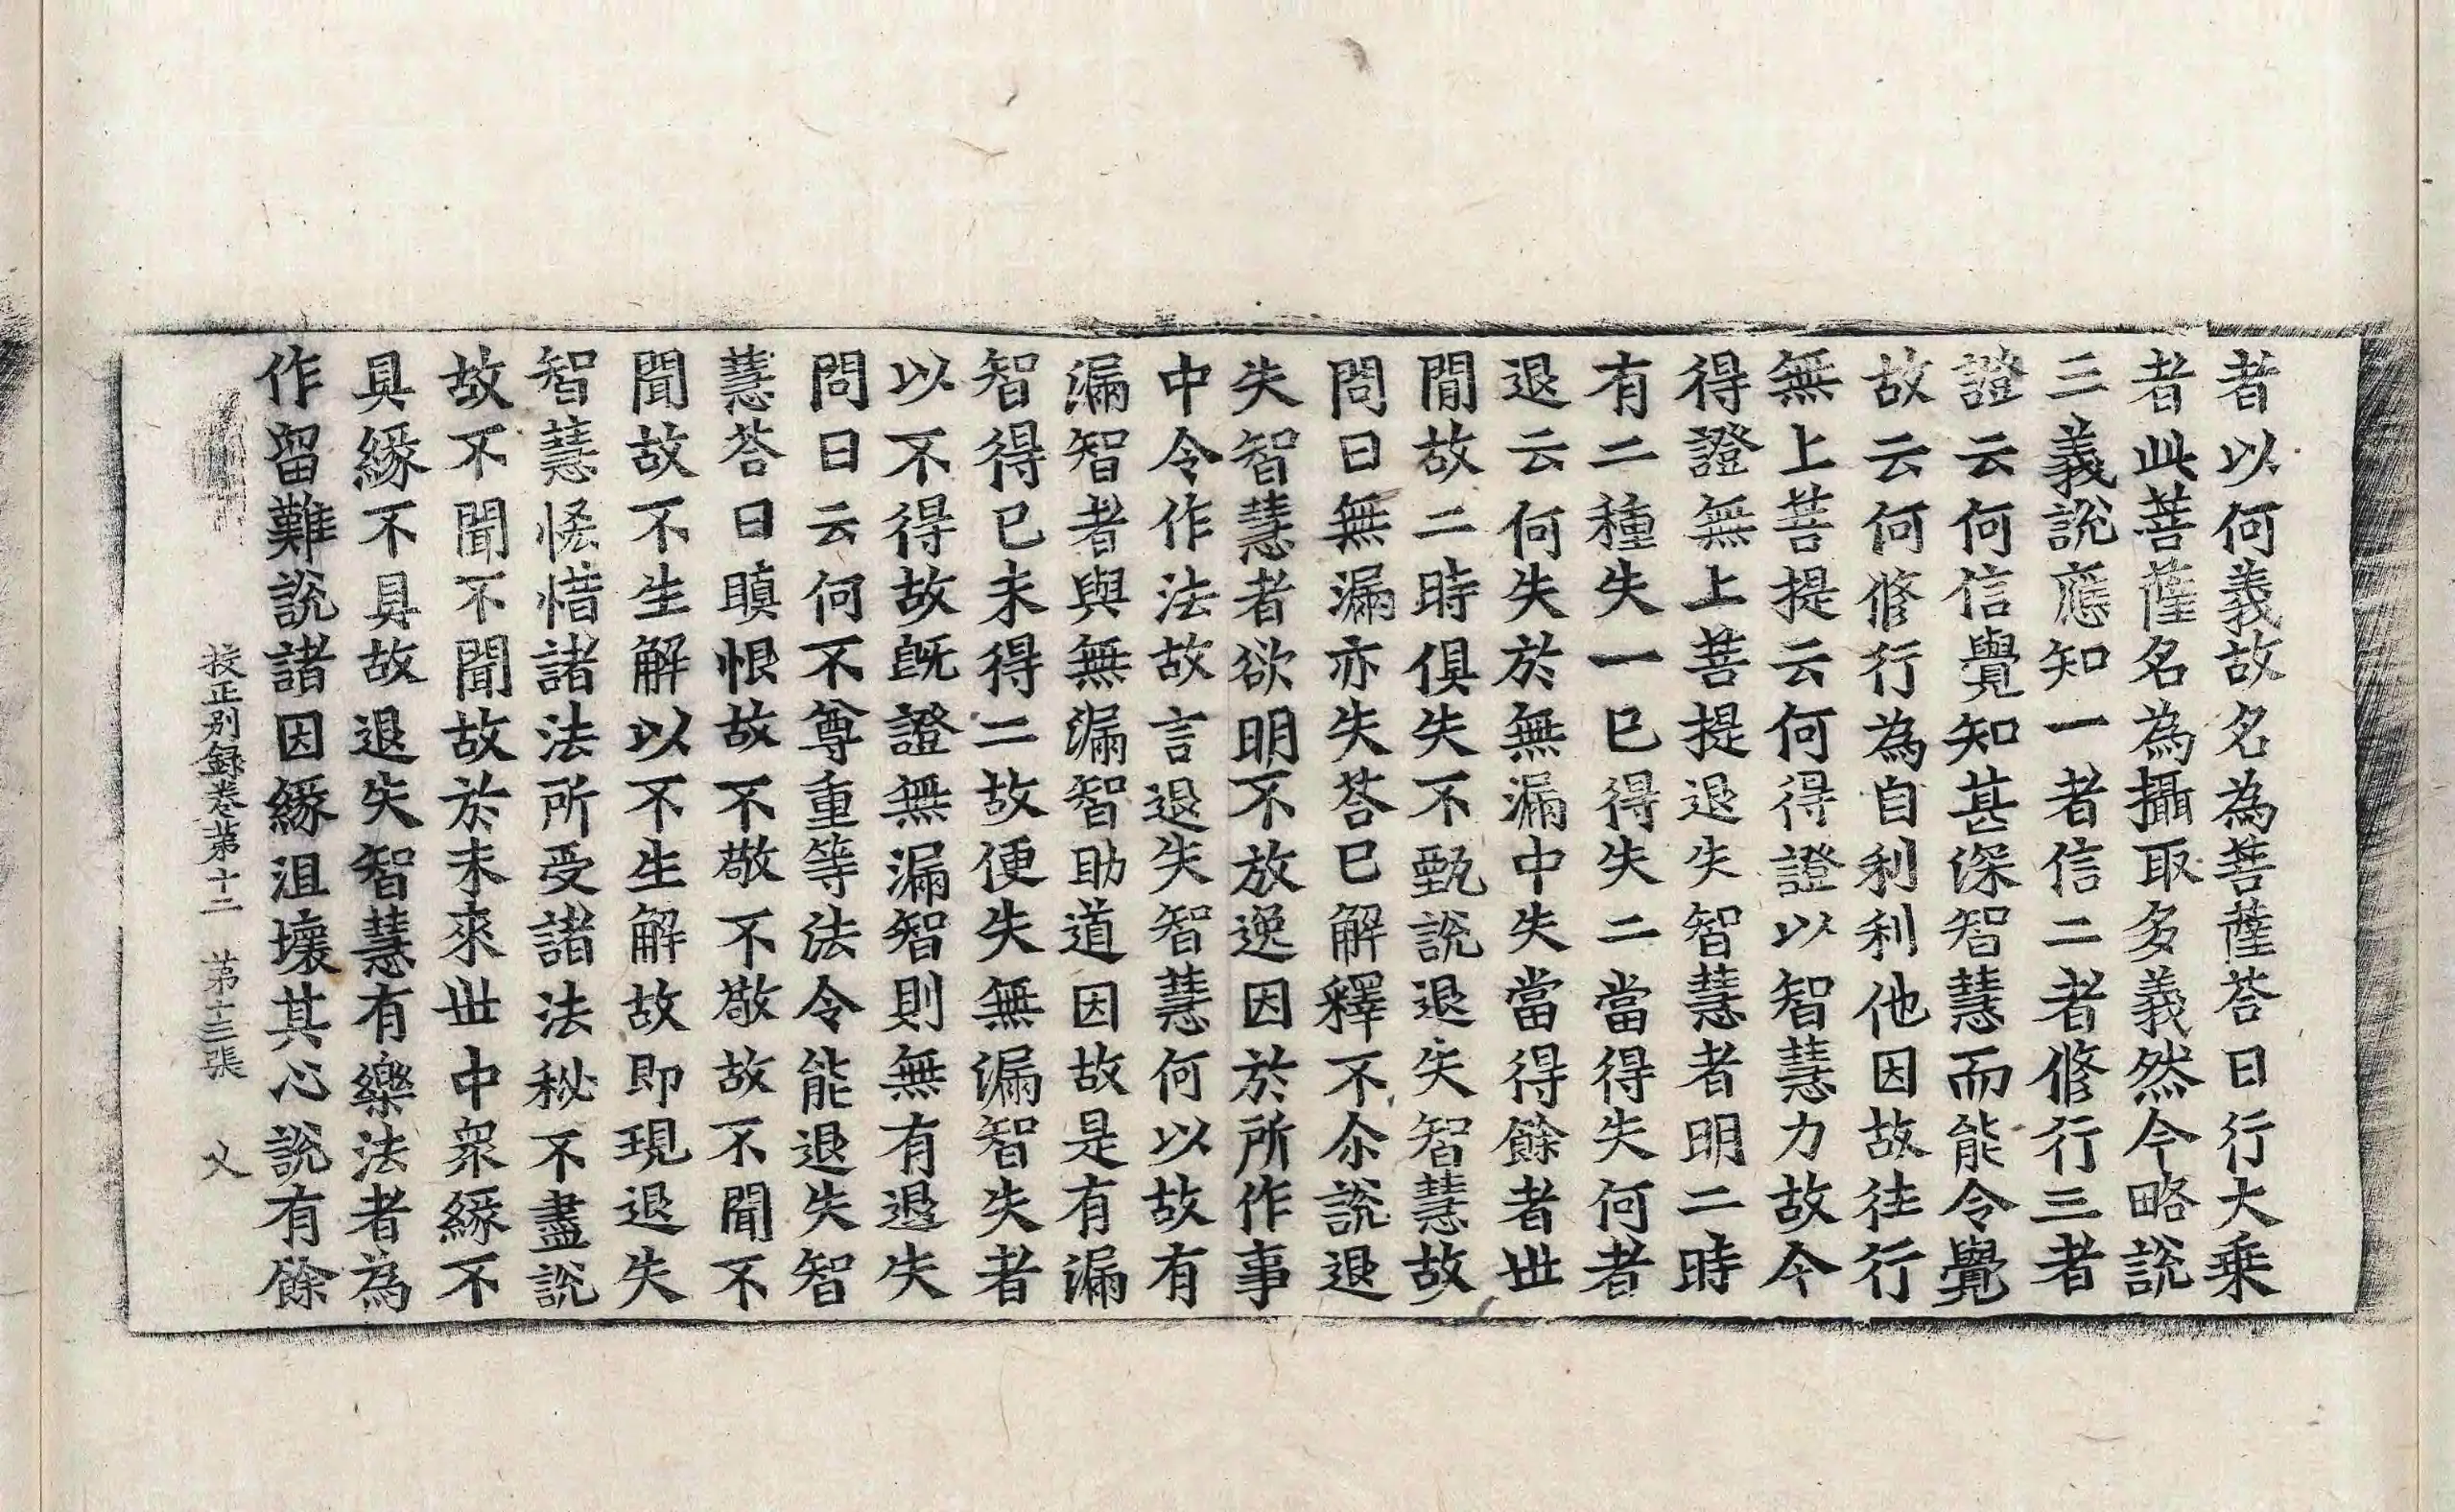 者以何義故名為菩薩荅曰行大乗
者此菩薩名為攝取多義然今略說
三義說應知一者信二者修行三者
證云何信覺知甚深智慧而能令覺
故云何修行為自利利他因故徃行
無上菩提云何得證以智慧力故今
得證無上菩提退失智慧者明二時
有二種失一已得失二當得失何者
退云何失於無漏中失當得餘者世
間故二時俱失不甄說退失智慧故
問曰無漏亦失荅已解釋不尒說退
失智慧者欲明不放逸因於所作事
中令作法故言退失智慧何以故有
漏智者與無漏智助道因故是有漏
智得已未得二故便失無漏智失者
以不得故旣證無漏智則無有退失
問曰云何不尊重等法令能退失智
慧荅曰瞋恨故不敬不敬故不聞不
聞故不生解以不生解故即現退失
智慧悋惜諸法所受諸法秘不盡說
故不聞不聞故於未來世中衆緣不
具緣不具故退失智慧有樂法者為
作留難說諸因緣沮壞其心說有餘
挍正別錄卷第十二　第十三張　乂